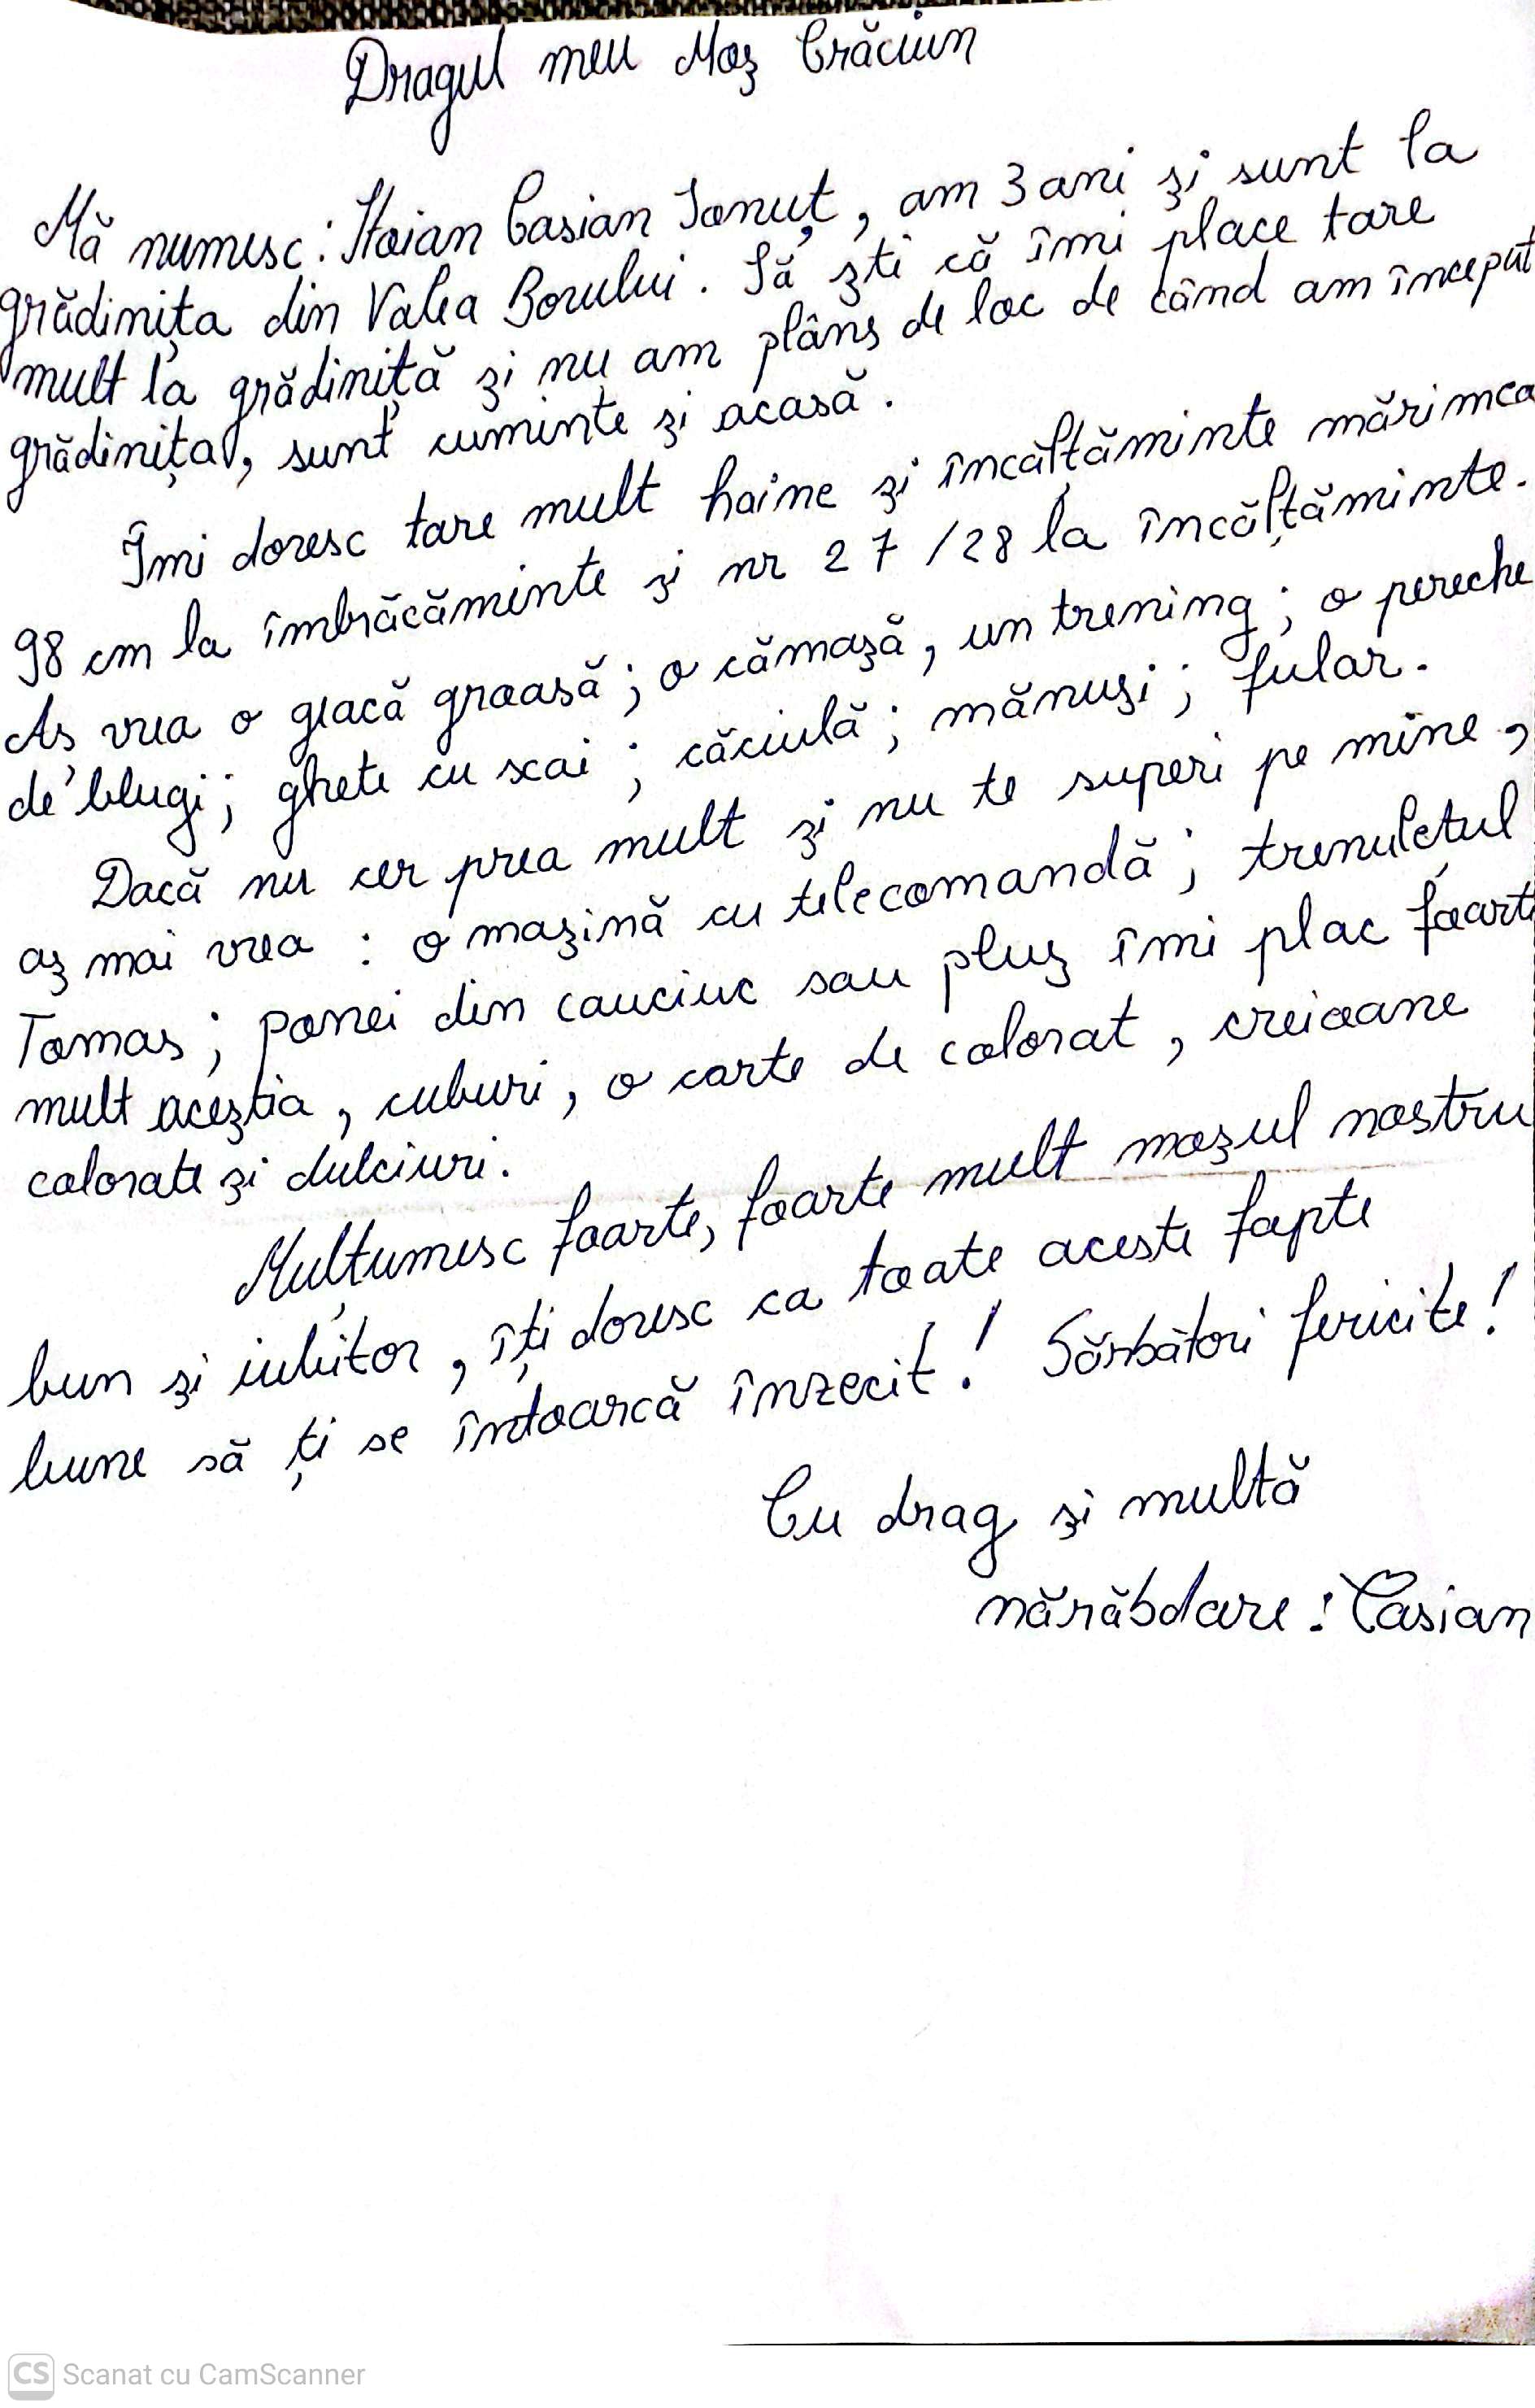 Dragul meu Moș Crăciun
Mă numesc: Stoian Casian Ionuț, am 3 ani și sunt la
grădinița din Valea Borului. Să ști că îmi place tare
mult la grădiniță și nu am plâns de loc de când am început
grădinița, sunt cuminte și acasă.
Îmi doresc tare mult haine și încălțăminte mărimea
98 cm la îmbrăcăminte și nr 27/28 la încălțăminte.
Aș vrea o geacă groasă; o cămașă, un trening; o pereche
de blugi; ghete cu scai; căciulă; mănuși; fular.
Dacă nu cer prea mult și nu te superi pe mine,
aș mai vrea: o mașină cu telecomandă; trenulețul
Tomas; ponei din cauciuc sau pluș îmi plac foarte
mult aceștia, cuburi, o carte de colorat, creioane
colorate și dulciuri.
Mulțumesc foarte, foarte mult moșul nostru
bun și iubitor, îți doresc ca toate aceste fapte
bune să ți se întoarcă înzecit! Sărbători fericite!
Cu drag și multă
nărăbdare: Casian
CS Scanat cu CamScanner